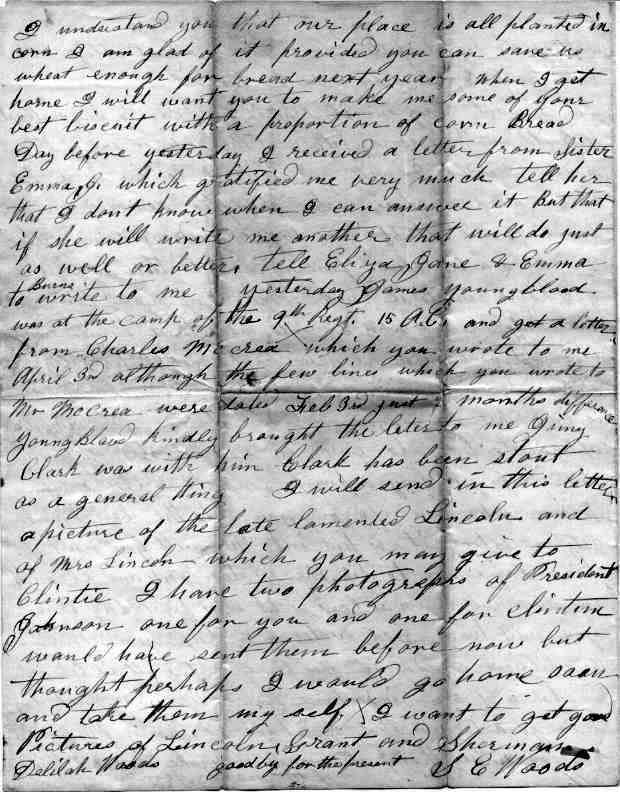 I understand you that our place is all planted in
corn I am glad of it provided you can save us
wheat enough for bread next year when I get
home I will want you to make me some of your
best biscuit with a proportion of corn Bread
Day before yesterday I received a letter from Sister
Emma J. which gratified me very much tell her
that I dont know when I can answer it But that
if she will write me another that will do just
as well or better, tell Eliza Jane & Emma
to write to me yesterday James youngblood
was at the camp of the 9th Regt. 15 A.C. and got a letter
from Charles McCrea which you wrote to me
April 3rd although the few lines which you wrote to
Mr McCrea were date Feb 3rd just 2 months difference
Youngblood kindly brought the leter to me
Clark was with him Clark has been stout
as a general thing I will send in this letter
a picture of the late lamented Lincoln and
of Mrs Lincoln which you may give to
Clintie I have two photographs of President
Johnson one for you and one for Clinton
would have sent them before now but
thought perhaps I would go home soon
and take them my self. X I want to get good
Pictures of Lincoln, Grant and Sherman
Delilah Woods good by for the present S E Woods